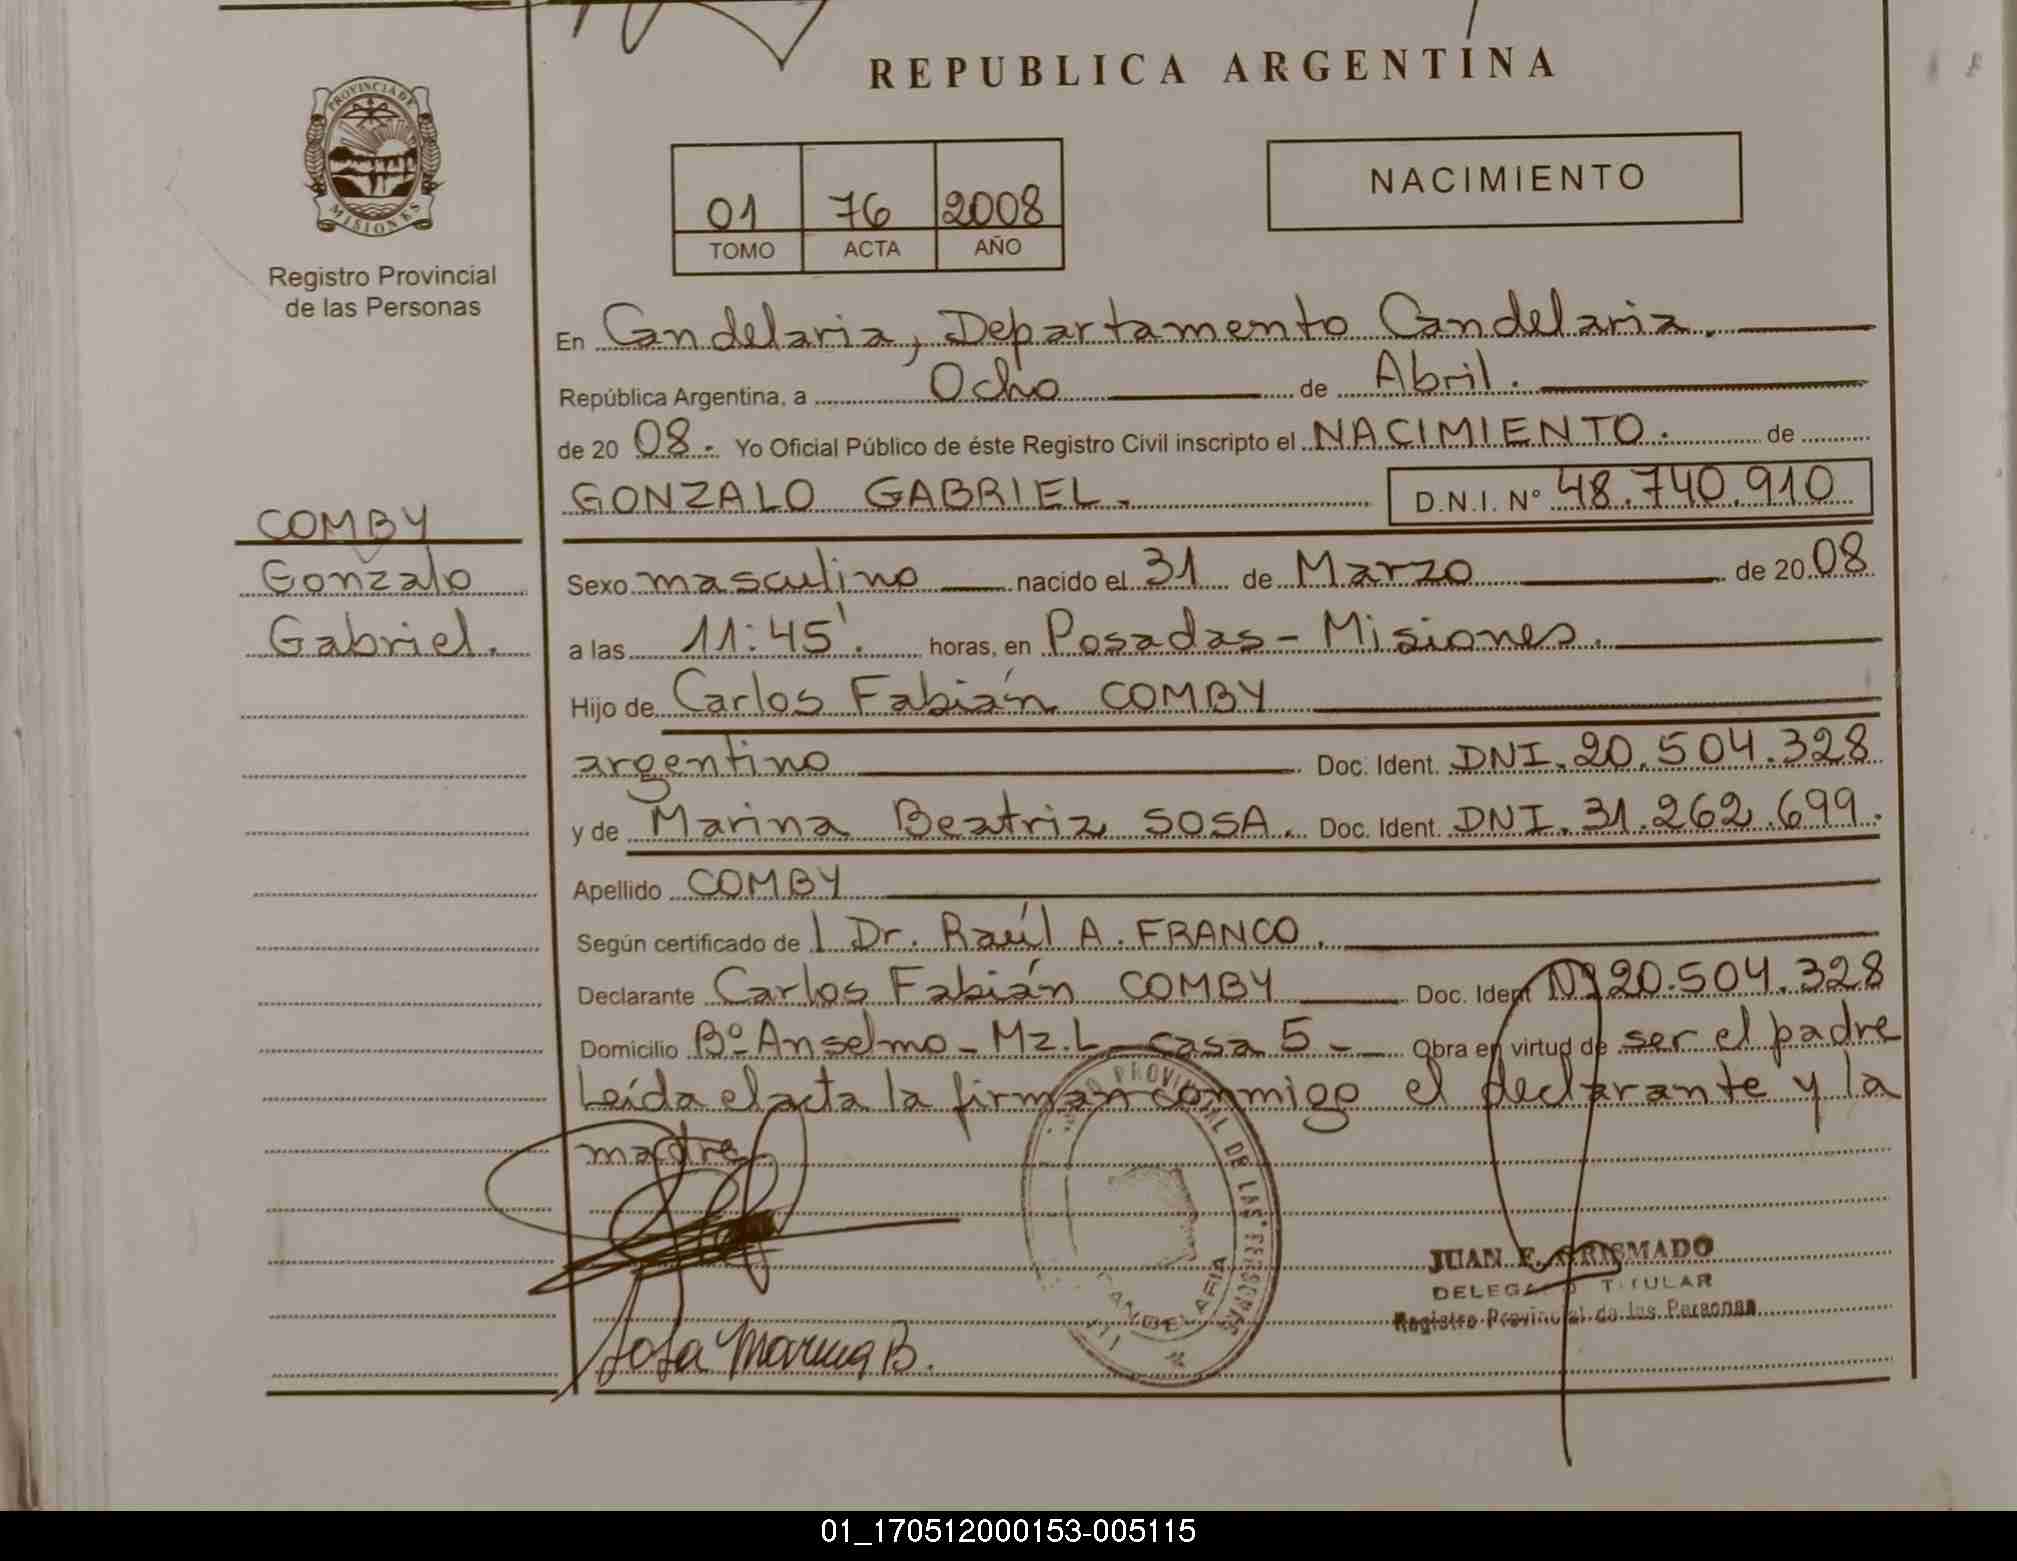 REPUBLICA ARGENTINA
PROVINCIA DE MISIONES
Registro Provincial
de las Personas
01 76 2008
TOMO ACTA AÑO
NACIMIENTO
En Candelaria, Departamento Candelaria.
República Argentina, a Ocho de Abril.
de 20 08. Yo Oficial Público de éste Registro Civil inscripto el NACIMIENTO. de
GONZALO GABRIEL. D.N.I. Nº 48.740.910
COMBY
Gonzalo
Gabriel.
Sexo masculino nacido el 31 de Marzo de 20 08
a las 11:45'. horas, en Posadas - Misiones.
Hijo de Carlos Fabián COMBY
argentino Doc. Ident. DNI. 20.504.328
y de Marina Beatriz SOSA. Doc. Ident. DNI. 31.262.699.
Apellido COMBY
Según certificado de l Dr. Raúl A. FRANCO.
Declarante Carlos Fabián COMBY Doc. Ident Nº 20.504.328
Domicilio Bº Anselmo - Mz. L - casa 5 - Obra en virtud de ser el padre
Leída el acta la firman conmigo el declarante y la
madre
PROVINCIAL DE LAS PERSONAS
CANDELARIA
JUAN E. CRISMADO
DELEGADO TITULAR
Registro Provincial de las Personas
Sosa Marina B.
01_170512000153-005115